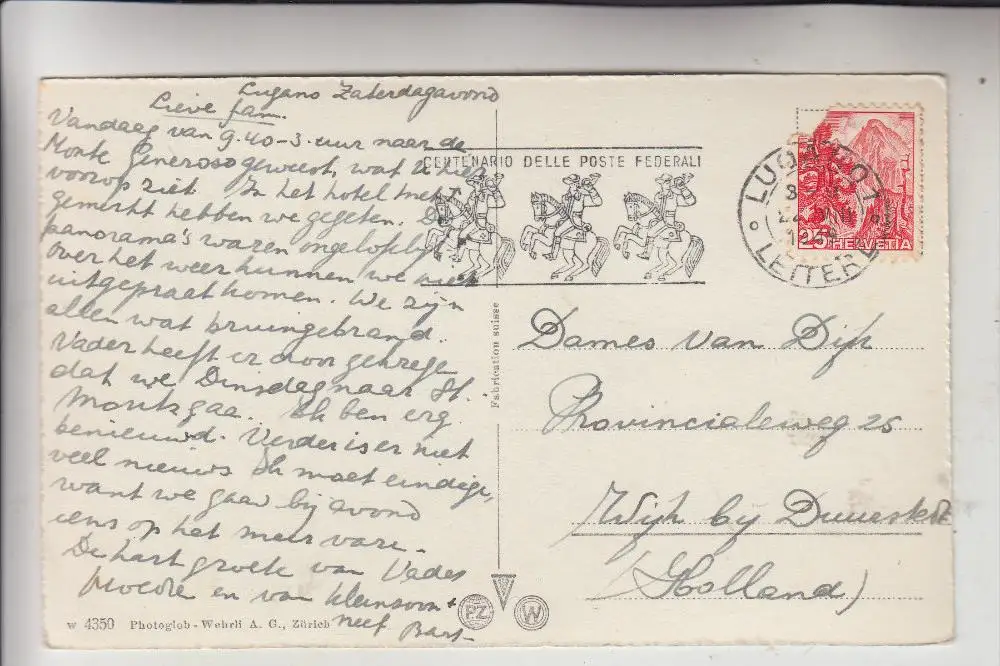 Lugano Zaterdagavond
Lieve fam.
Vandaag van 9.40-3. uur naar de
Monte Generoso geweest, wat U hier
voorop ziet. In het hotel met
gemerkt hebben we gegeten. De
panorama's waren ongelofelijk
over het weer kunnen we niet
uitgepraat komen. We zijn
allen wat bruingebrand.
Vader heeft er door gekrege
dat we Dinsdag naar St.
Moritz gaa. Ik ben erg
benieuwd. Verder is er niet
veel nieuws Ik moet eindige,
want we gaan bij avond
eens op het meer vare.
De hart groete van Vader
Moeder en van kleinzoon +
neef Bart
CENTENARIO DELLE POSTE FEDERALI
LUGANO 1
LETTERE
25 HELVETIA
Dames van Dijk
Provincialeweg 25
Wijk bij Duurstede
(Holland)
Fabrication suisse
W 4350 Photoglob-Wehrli A. G., Zürich
P.Z. W